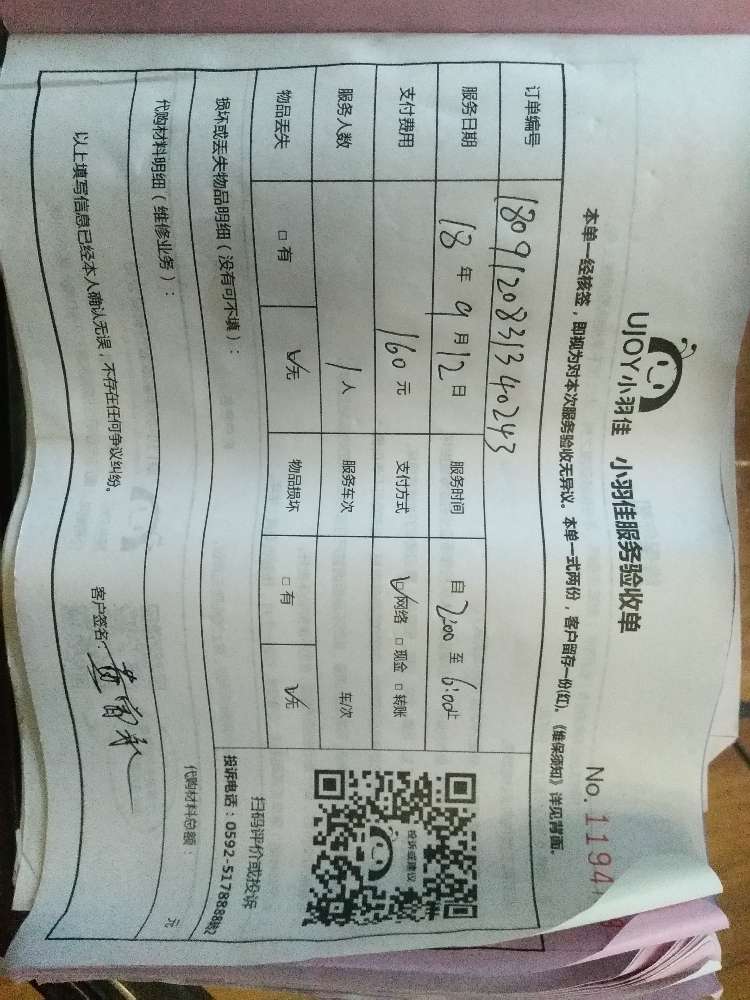 UJOY小羽佳 小羽佳服务验收单
No. 1194
本单一经核签，即视为对本次服务验收无异议。本单一式两份，客户留存一份(红)。《维保须知》详见背面。
订单编号 180912083134 0243
服务日期 18年9月12日 服务时间 自2:00至6:00止
支付费用 160元 支付方式 网络 现金 转账
服务人数 1人 服务车次 车/次
物品丢失 有 无 物品损坏 有 无
投诉或建议
扫码评价或投诉
投诉电话：0592-5178888转2
损坏或丢失物品明细（没有可不填）：
代购材料明细（维修业务）：
代购材料总额： 元
以上填写信息已经本人确认无误，不存在任何争议纠纷。
客户签名：